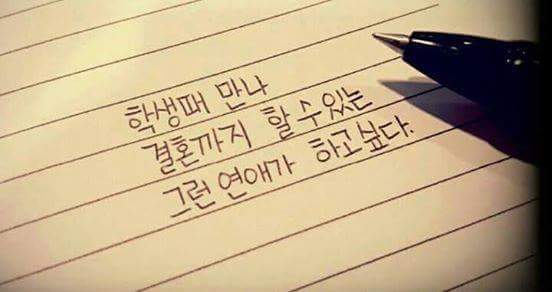 학생때 만나
결혼까지 할 수 있는
그런 연애가 하고싶다.